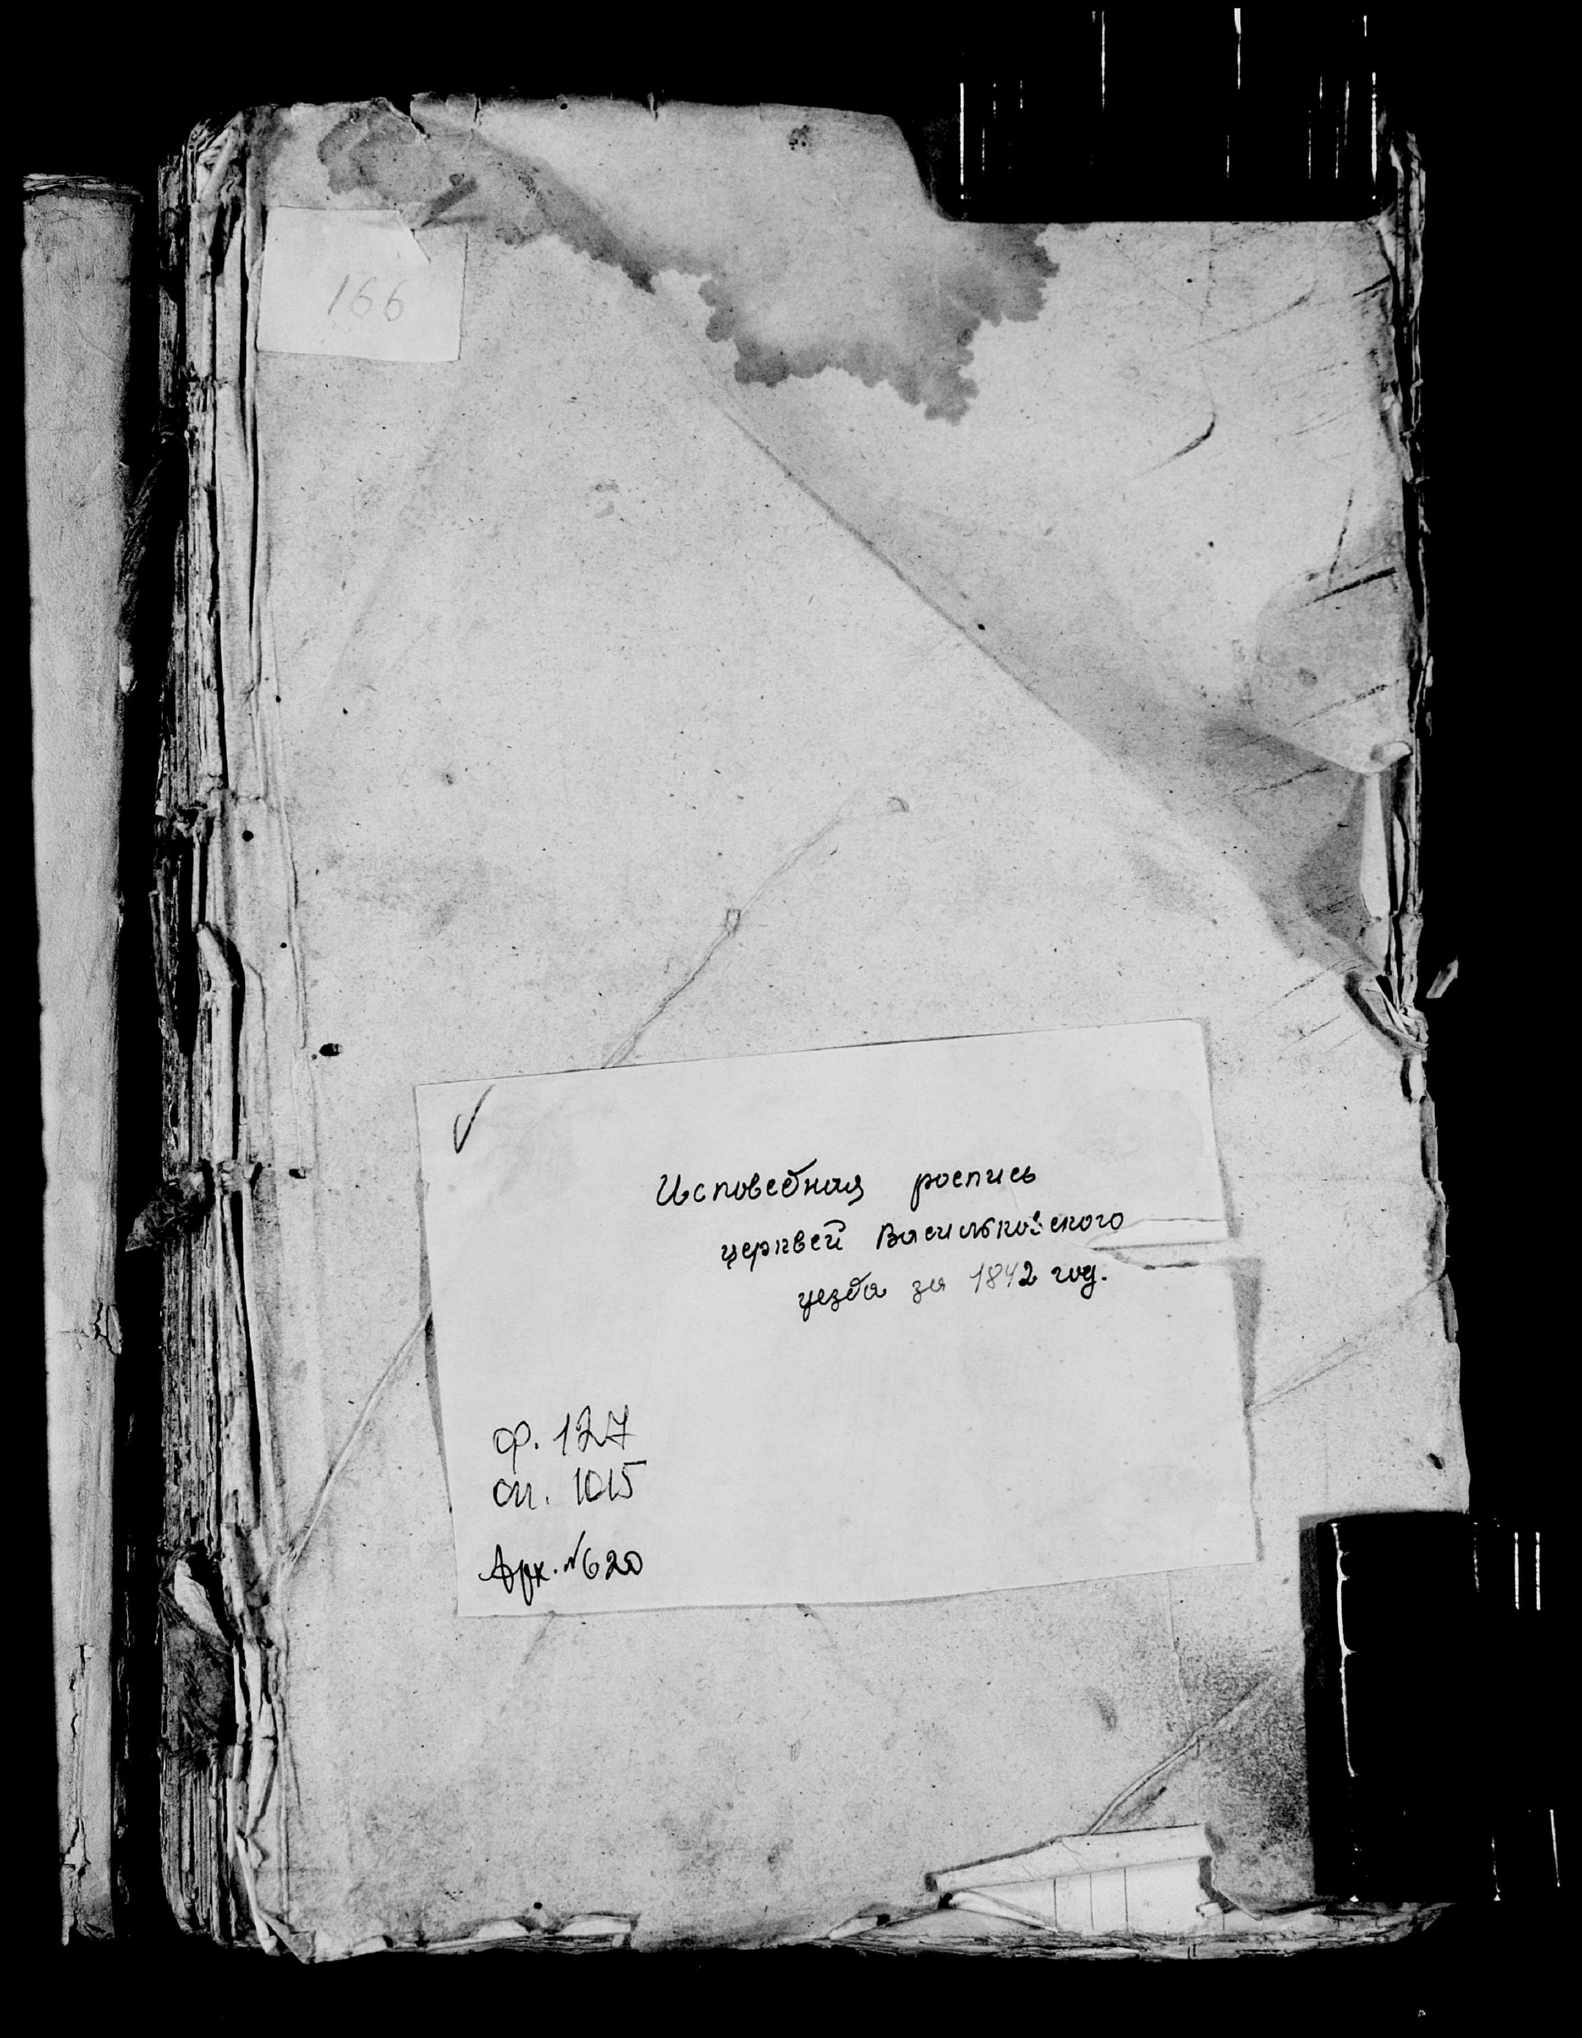 166
Исповедная роспись
церквей Васильковского
уезда за 1842 год.
ф. 127
оп. 1015
Арх. №620